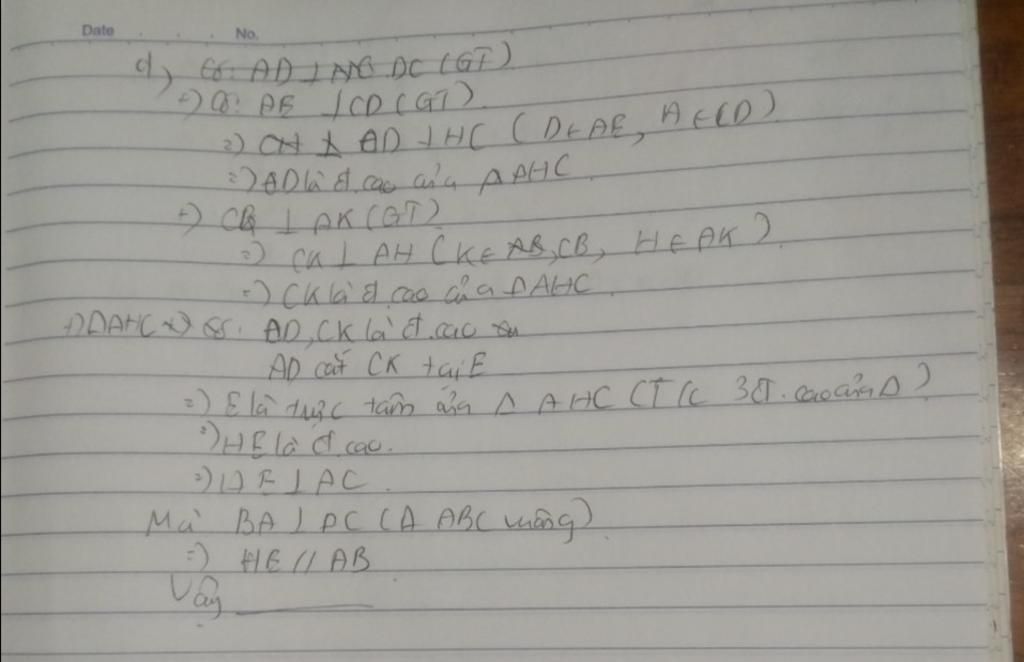 Date . . . No.
d) Có: AD ⊥ DC (GT)
+) Có: AE ⊥ CD (GT)
=) AD ⊥ HC (D ∈ AE, H ∈ CD)
=) AD là đ.cao của Δ AHC
+) CB ⊥ AK (GT)
=) CK ⊥ AH (K ∈ CB, H ∈ AK)
=) CK là đ.cao của Δ AHC
+) Δ AHC có: AD, CK là đ.cao
AD cắt CK tại E
=) E là trực tâm của Δ AHC (T/c 3 đ.cao của Δ)
=) HE là đ.cao.
=) HE ⊥ AC
Mà BA ⊥ AC (Δ ABC vuông)
=) HE // AB
Vậy